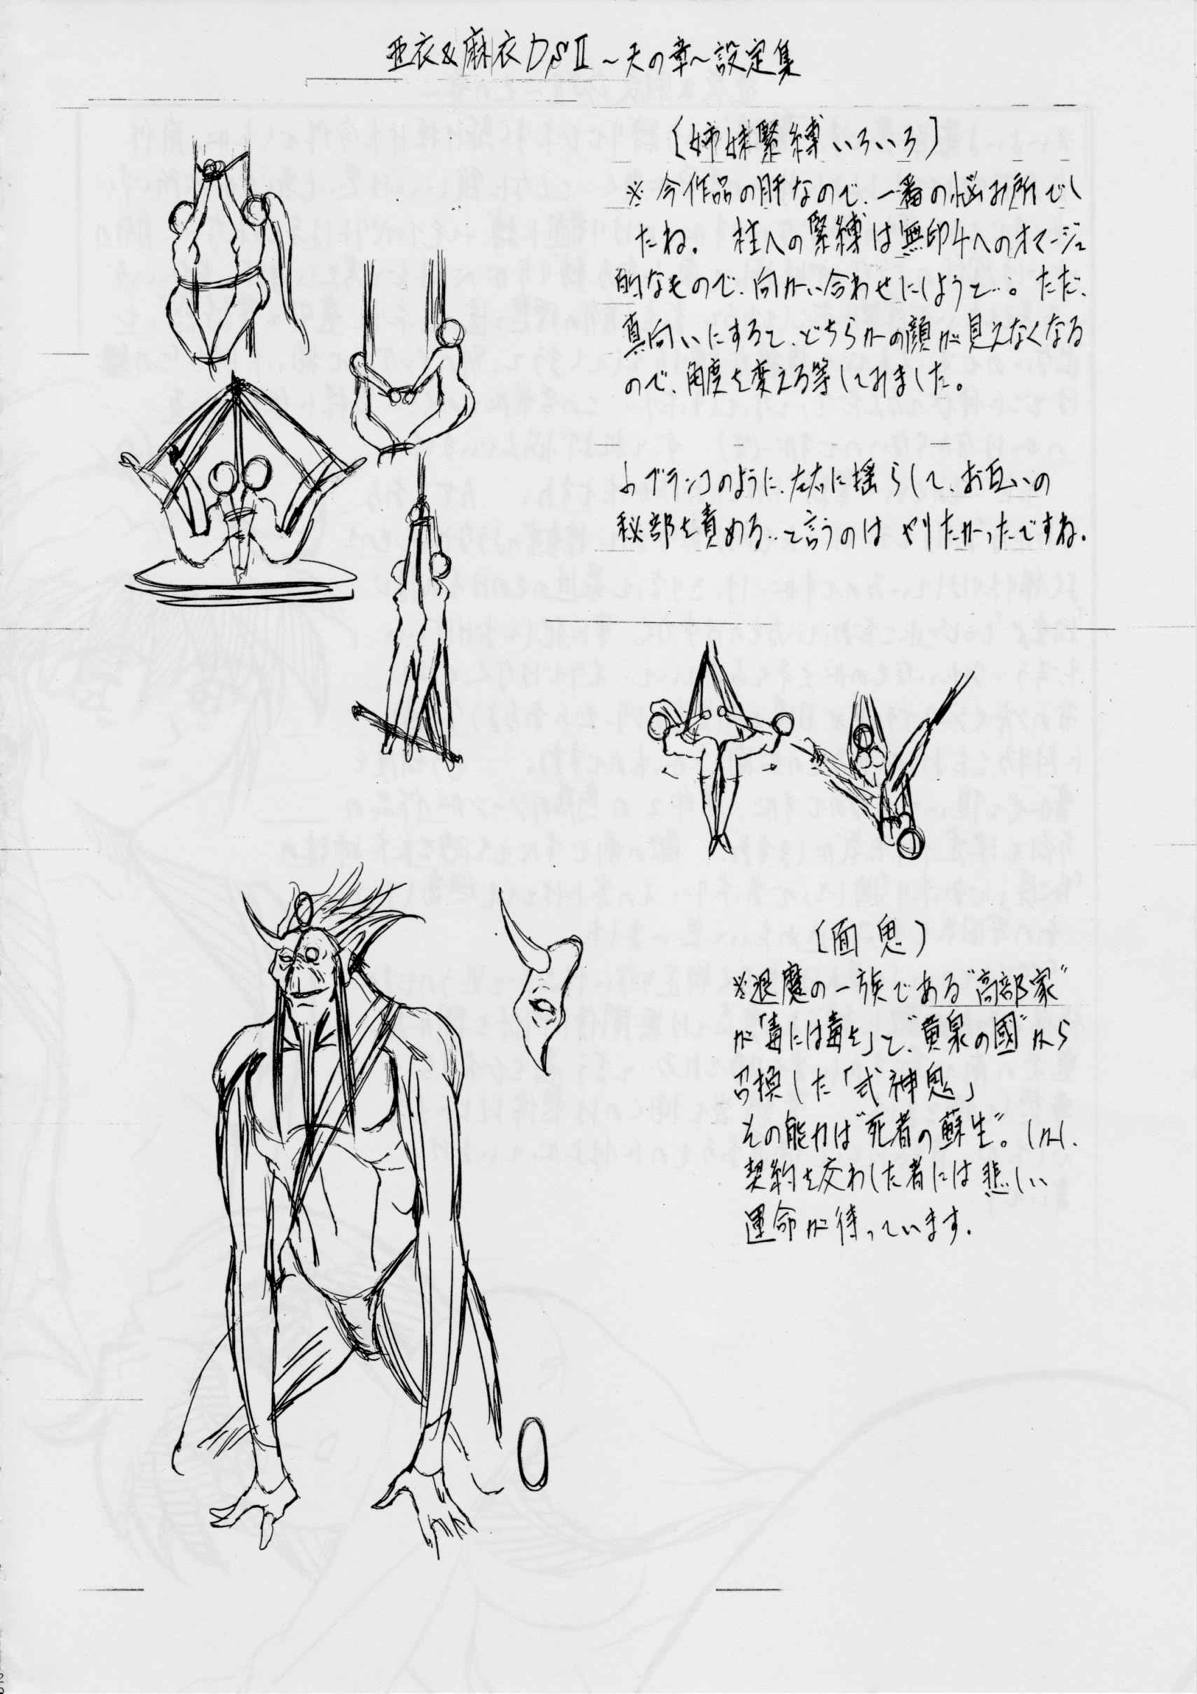 亜衣&麻衣DSⅡ～天の章～設定集
(姉妹緊縛いろいろ)
※今作品の肝なので、一番の悩み所でし
たね。柱への緊縛は無印4へのオマージュ
的なもので、向かい合わせにしようと…。ただ、
真向いにすると、どちらかの顔が見えなくなる
ので、角度を変える等してみました。
ブランコのように、左右に揺らして、お互いの
秘部を責める‥と言うのはやりたかったですね。
(面鬼)
※退魔の一族である"高部家"
が「毒には毒を」で、"黄泉の國"から
召換した「式神鬼」
その能力は"死者の蘇生"。しかし、
契約を交わした者には悲しい
運命が待っています。